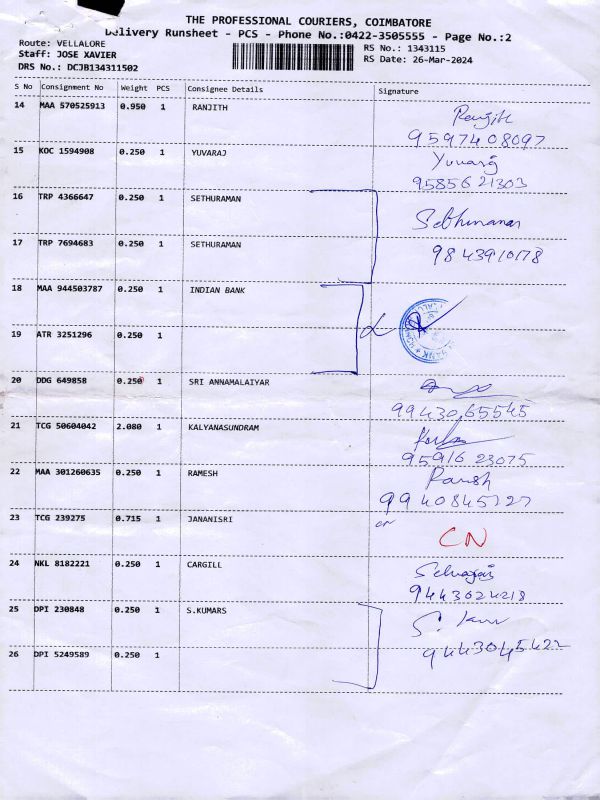 THE PROFESSIONAL COURIERS, COIMBATORE
Delivery Runsheet - PCS - Phone No.:0422-3505555 - Page No.:2
Route: VELLALORE
Staff: JOSE XAVIER
DRS No.: DCJB134311502
RS No.: 1343115
RS Date: 26-Mar-2024
S No Consignment No Weight PCS Consignee Details Signature
14 MAA 570525913 0.950 1 RANJITH
Ranjith
9597408097
15 KOC 1594908 0.250 1 YUVARAJ
Yuvaraj
9585621303
16 TRP 4366647 0.250 1 SETHURAMAN
Sethuraman
17 TRP 7694683 0.250 1 SETHURAMAN
9843910178
18 MAA 944503787 0.250 1 INDIAN BANK
19 ATR 3251296 0.250 1
20 DDG 649858 0.250 1 SRI ANNAMALAIYAR
9943065545
21 TCG 50604042 2.080 1 KALYANASUNDRAM
9591623075
22 MAA 301260635 0.250 1 RAMESH
Ramsh
9940845727
23 TCG 239275 0.715 1 JANANISRI
CN
24 NKL 8182221 0.250 1 CARGILL
Selvaraj
9443024218
25 DPI 230848 0.250 1 S.KUMARS
26 DPI 5249589 0.250 1
9443045422